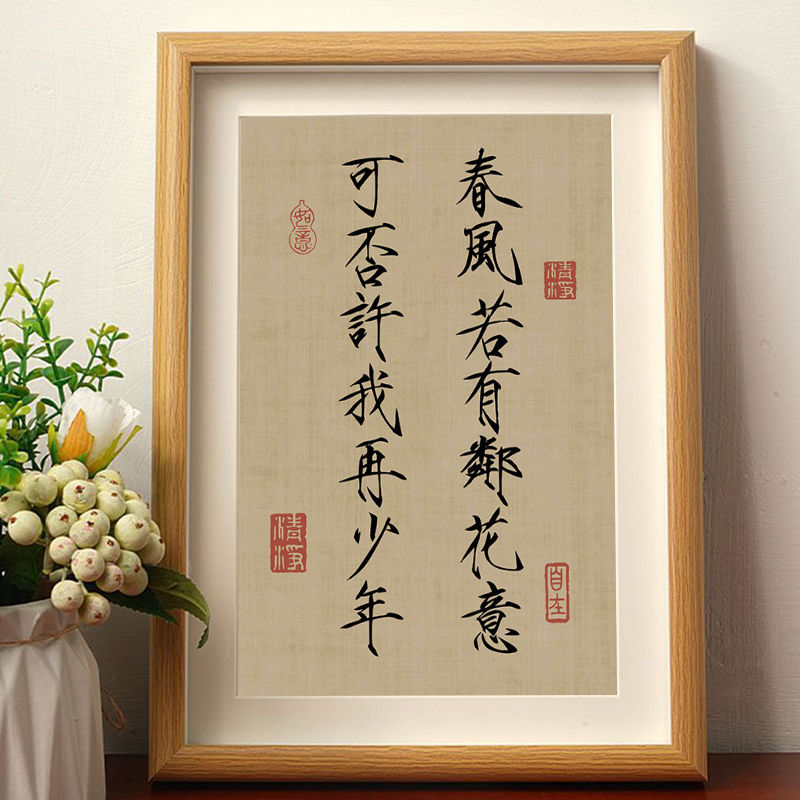 春風若有鄰花意
可否許我再少年
清淨
自在
如意
清淨